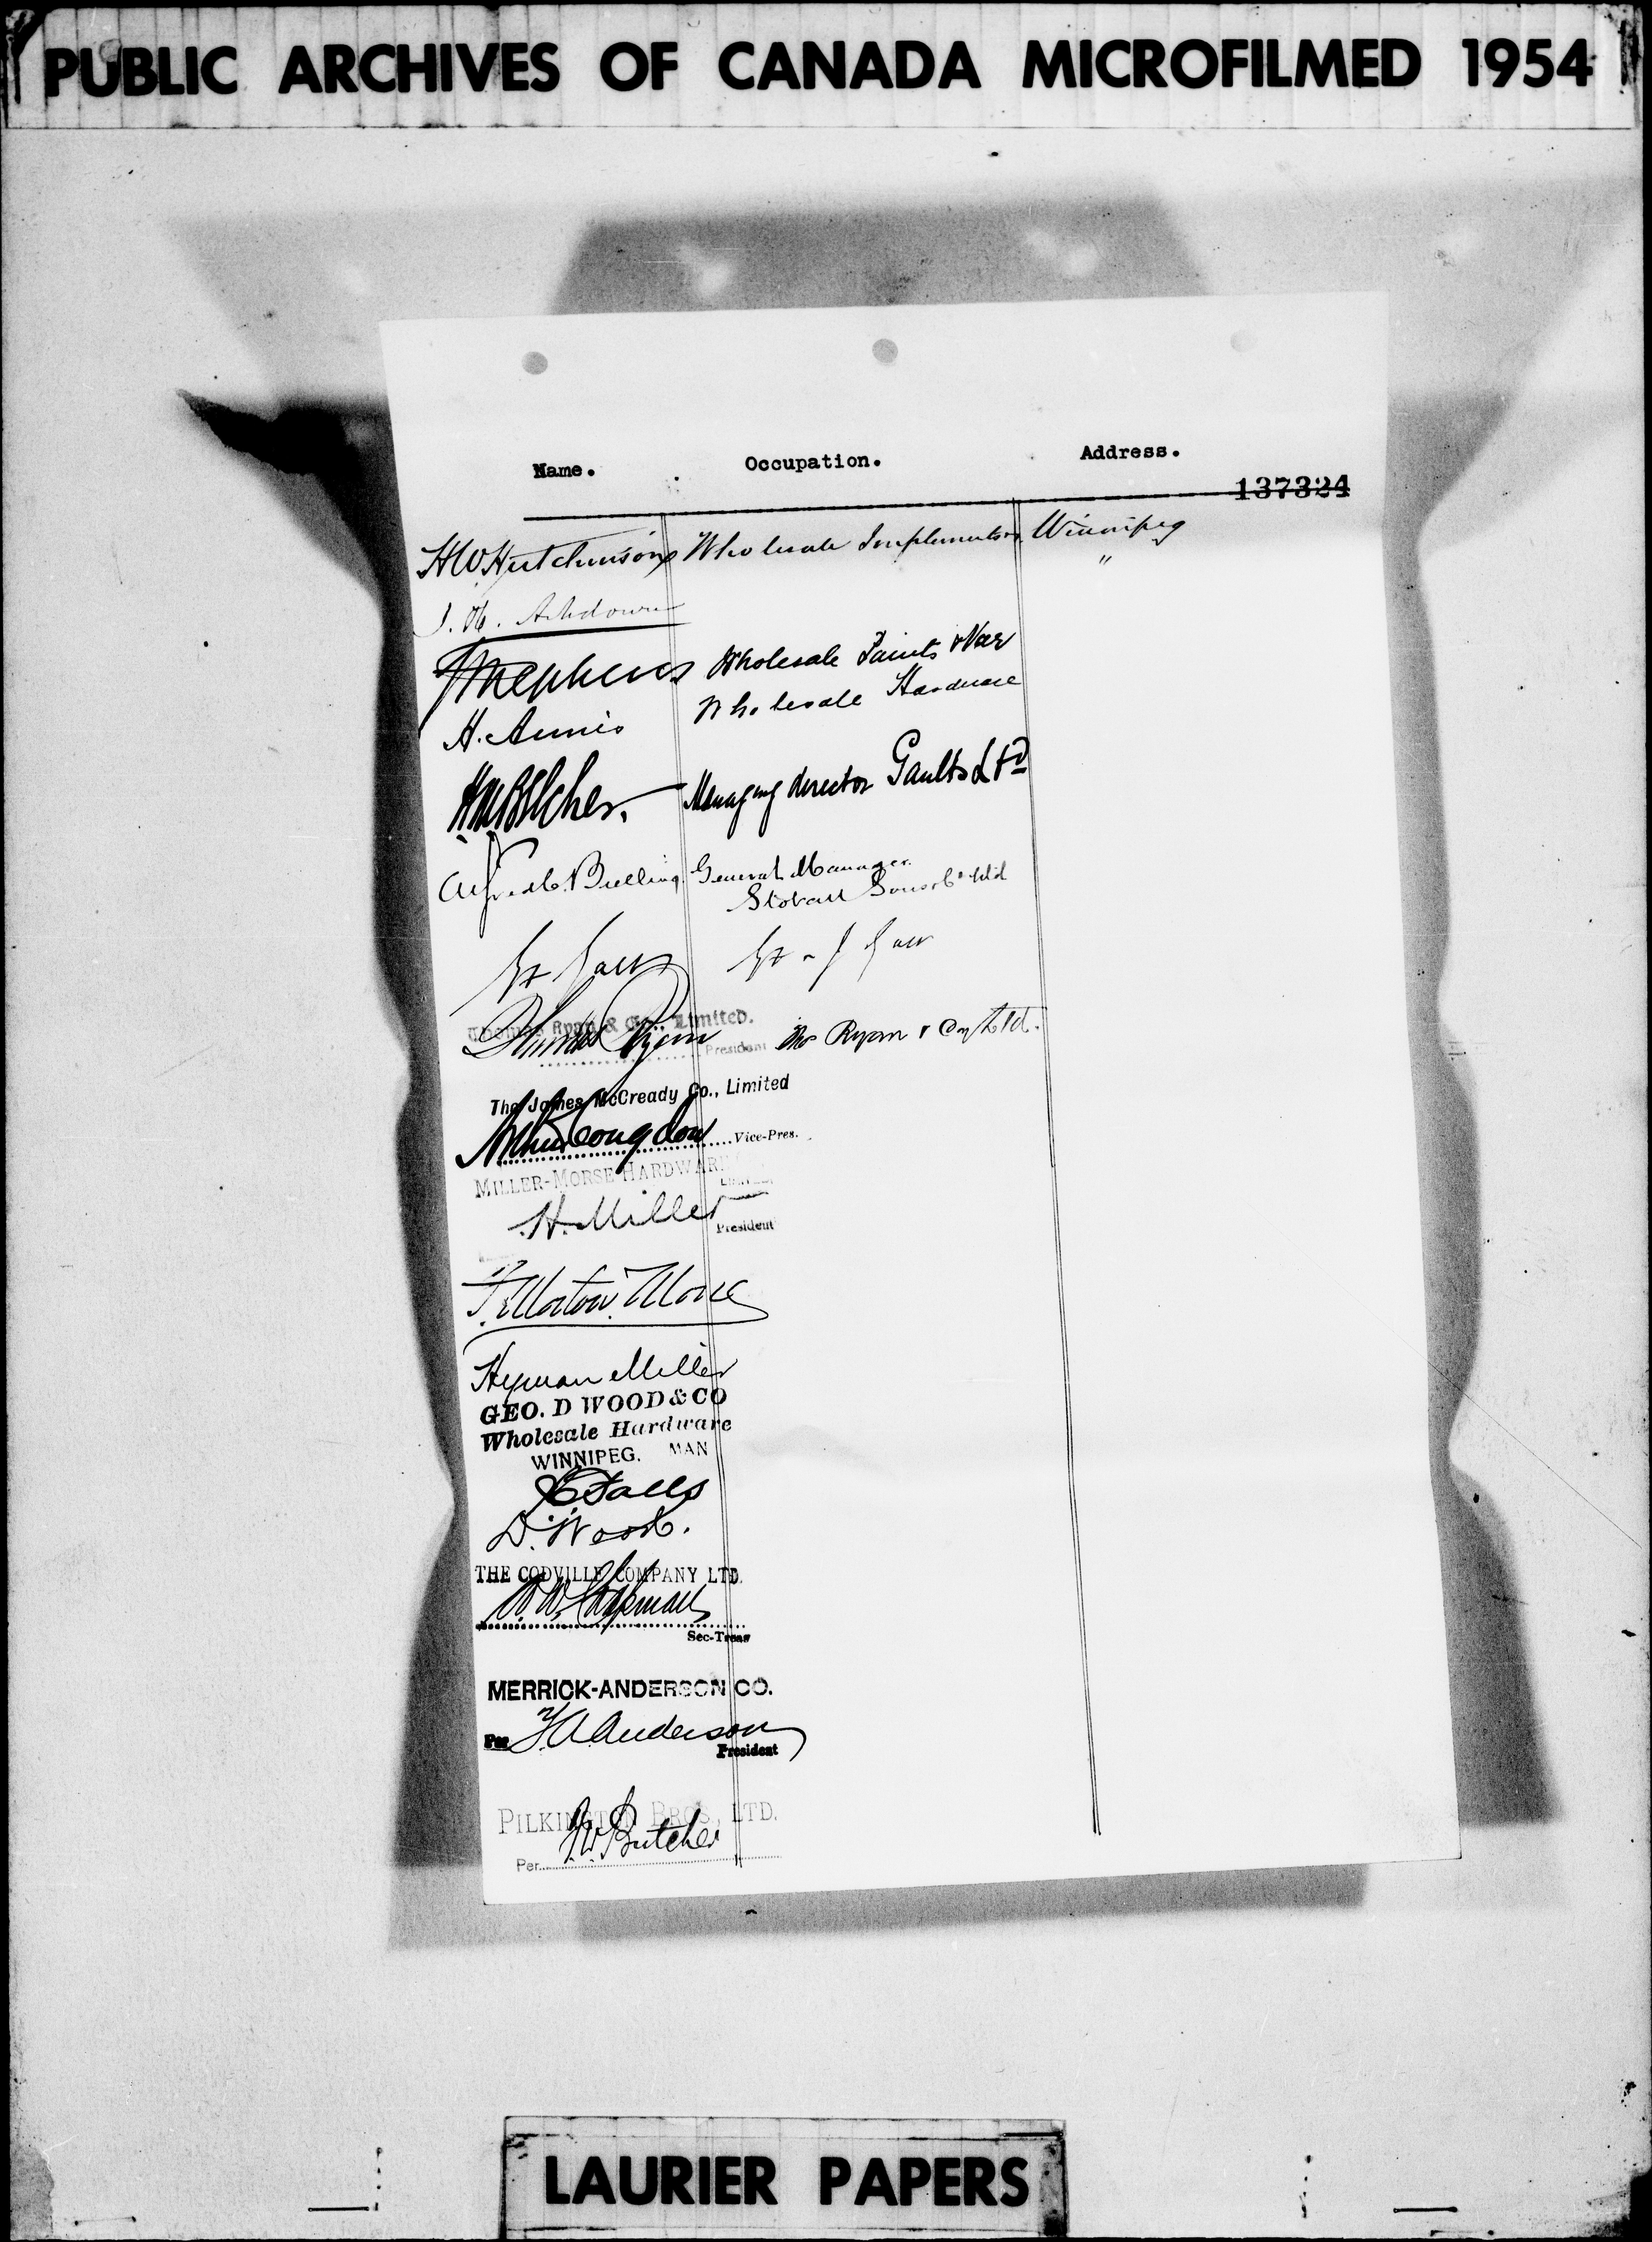 PUBLIC ARCHIVES OF CANADA MICROFILMED 1954
Name. Occupation. Address.
137324
H W Hutchinson Wholesale Implements Winnipeg
"
J. H. Ashdown
Stephens Wholesale Paints & Var
H. Annis Wholesale Hardware
H M Belcher. Managing director Gaults Ltd
Alfred General Manager
Stovel
Thomas Ryan & Co., Limited.
Thomas Ryan President Ryan & Coy Ltd.
The James McCready Co., Limited
Arthur Congdon Vice-Pres.
MILLER-MORSE HARDWARE
H. Miller President
F. Morton Morse
Hyman Miller
GEO. D WOOD & CO
Wholesale Hardware
WINNIPEG. MAN
Falls
D. Wood.
THE CODVILLE COMPANY LTD.
W. Chapman
Sec-Treas
MERRICK-ANDERSON CO.
Per Anderson
President
PILKINGTON BROS. LTD.
Per J W Butcher
LAURIER PAPERS